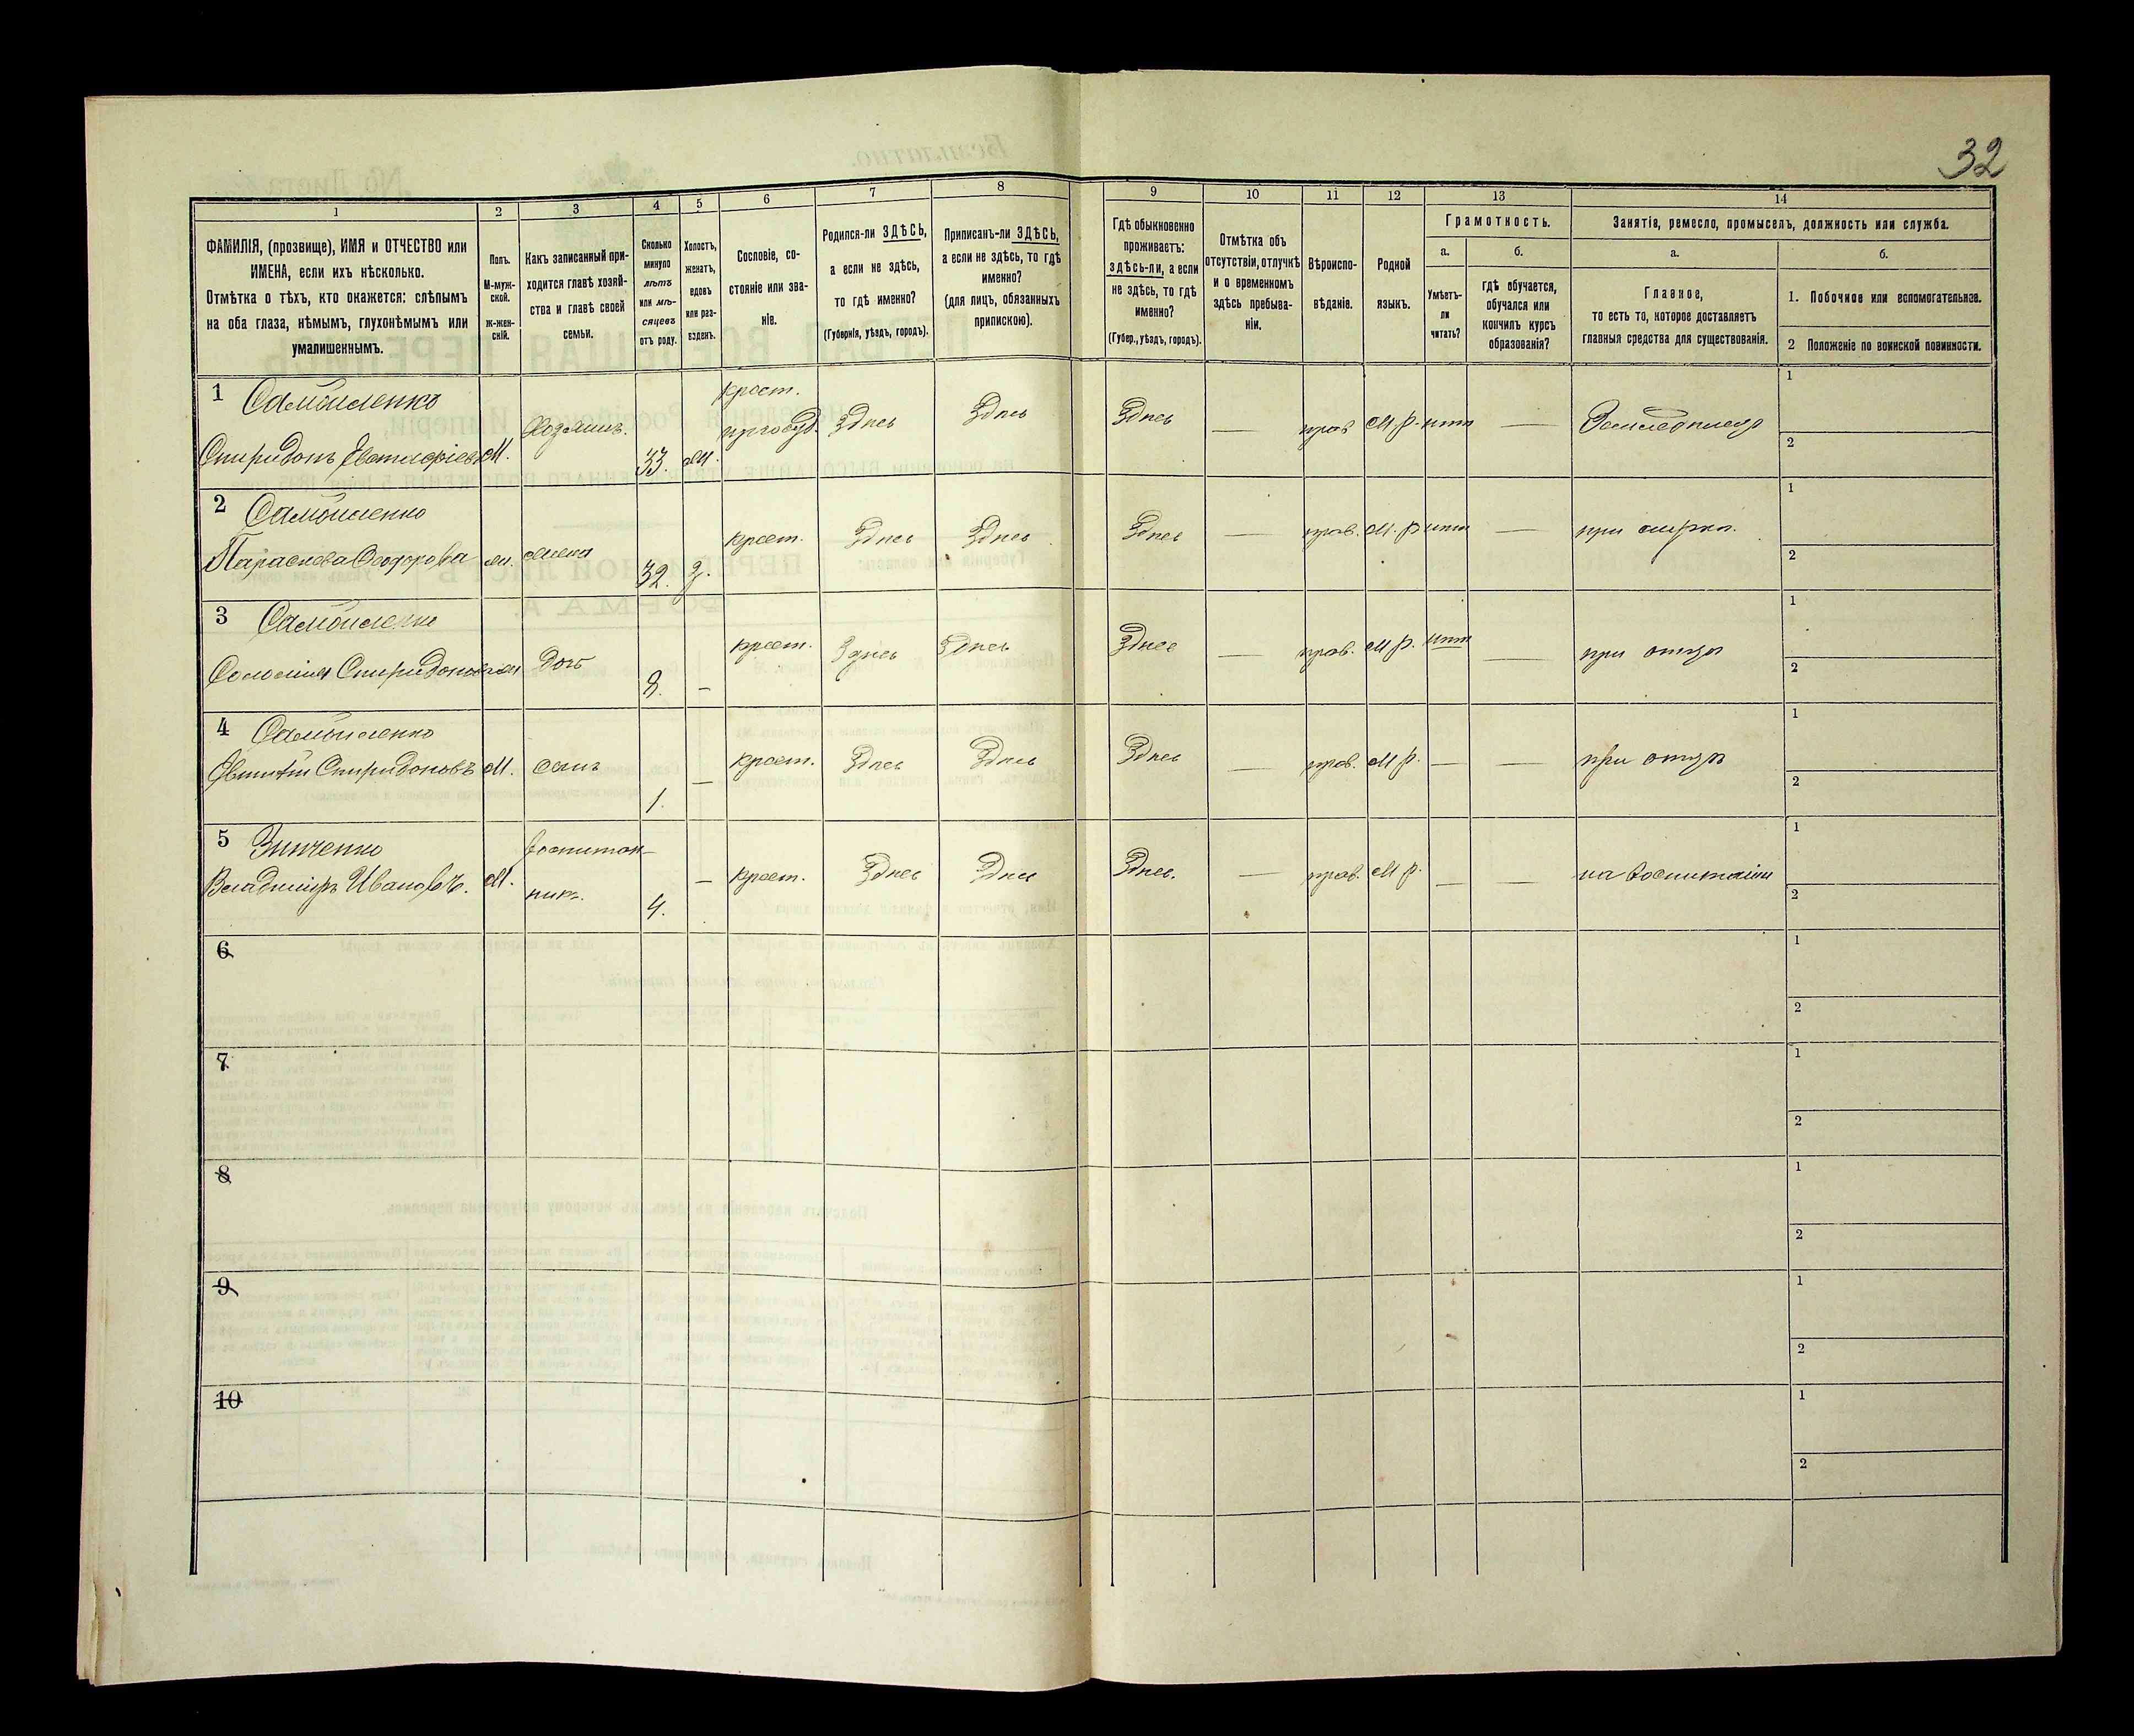 32
1 2 3 4 5 6 7 8 9 10 11 12 13 14
ФАМИЛІЯ, (прозвище), ИМЯ и ОТЧЕСТВО или
ИМЕНА, если ихъ нѣсколько.
Отмѣтка о тѣхъ, кто окажется: слѣпымъ
на оба глаза, нѣмымъ, глухонѣмымъ или
умалишеннымъ.
Полъ.
М-муж-
ской.
Ж-жен-
скій.
Какъ записанный при-
ходится главѣ хозяй-
ства и главѣ своей
семьи.
Сколько
минуло
лѣтъ
или мѣ-
сяцевъ
отъ роду.
Холостъ,
женатъ,
вдовъ
или раз-
веденъ.
Сословіе, со-
стояніе или зва-
ніе.
Родился-ли ЗДѢСЬ,
а если не здѣсь,
то гдѣ именно?
(Губернія, уѣздъ, городъ).
Приписанъ-ли ЗДѢСЬ,
а если не здѣсь, то гдѣ
именно?
(для лицъ, обязанныхъ
припискою).
Гдѣ обыкновенно
проживаетъ:
здѣсь-ли, а если
не здѣсь, то гдѣ
именно?
(Губер., уѣздъ, городъ).
Отмѣтка объ
отсутствіи, отлучкѣ
и о временномъ
здѣсь пребыва-
ніи.
Вѣроиспо-
вѣданіе.
Родной
языкъ.
Грамотность.
а.
Умѣетъ-
ли
читать?
б.
гдѣ обучается,
обучался или
кончилъ курсъ
образованія?
Занятія, ремесло, промыселъ, должность или служба.
а.
Главное,
то есть то, которое доставляетъ
главныя средства для существованія.
б.
1. Побочное или вспомогательное.
2 Положеніе по воинской повинности.
1 Самойленко крест. 1
Спиридонъ М. Хозяинъ. 33. Здѣсь Здѣсь Здѣсь — прав М.р. нѣт — 2
2 Самойленко 1
Параскева Феодорова жена 32. крест. Здѣсь Здѣсь Здѣсь — прав. М.р. нѣт — при мужѣ. 2
3 Самойленко 1
Соломія Спиридонова дочь 8. — крест. Здѣсь Здѣсь Здѣсь — прав. М.р. нѣт — при отцѣ 2
4 Самойленко 1
Спиридоновъ М. сынъ 1. — крест. Здѣсь Здѣсь Здѣсь — прав. М.р. — — при отцѣ 2
5 Зинченко воспитан- 1
Владиміръ Ивановъ. М. никъ. 4. — крест. Здѣсь Здѣсь Здѣсь. — прав. М.р. — — на воспитаніи 2
6 1
2
7 1
2
8 1
2
9 1
2
10 1
2